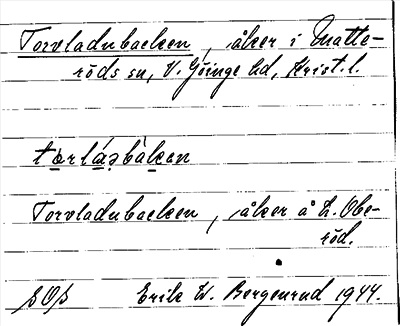 Torvladubacken, åker i Matte-
röds sn, V. Göinge hd, Krist. l.
tɷrláɷbàkən
Torvladubacken, åker å L. Obe-
röd.
SOS Erik W. Bergenrud 1944.